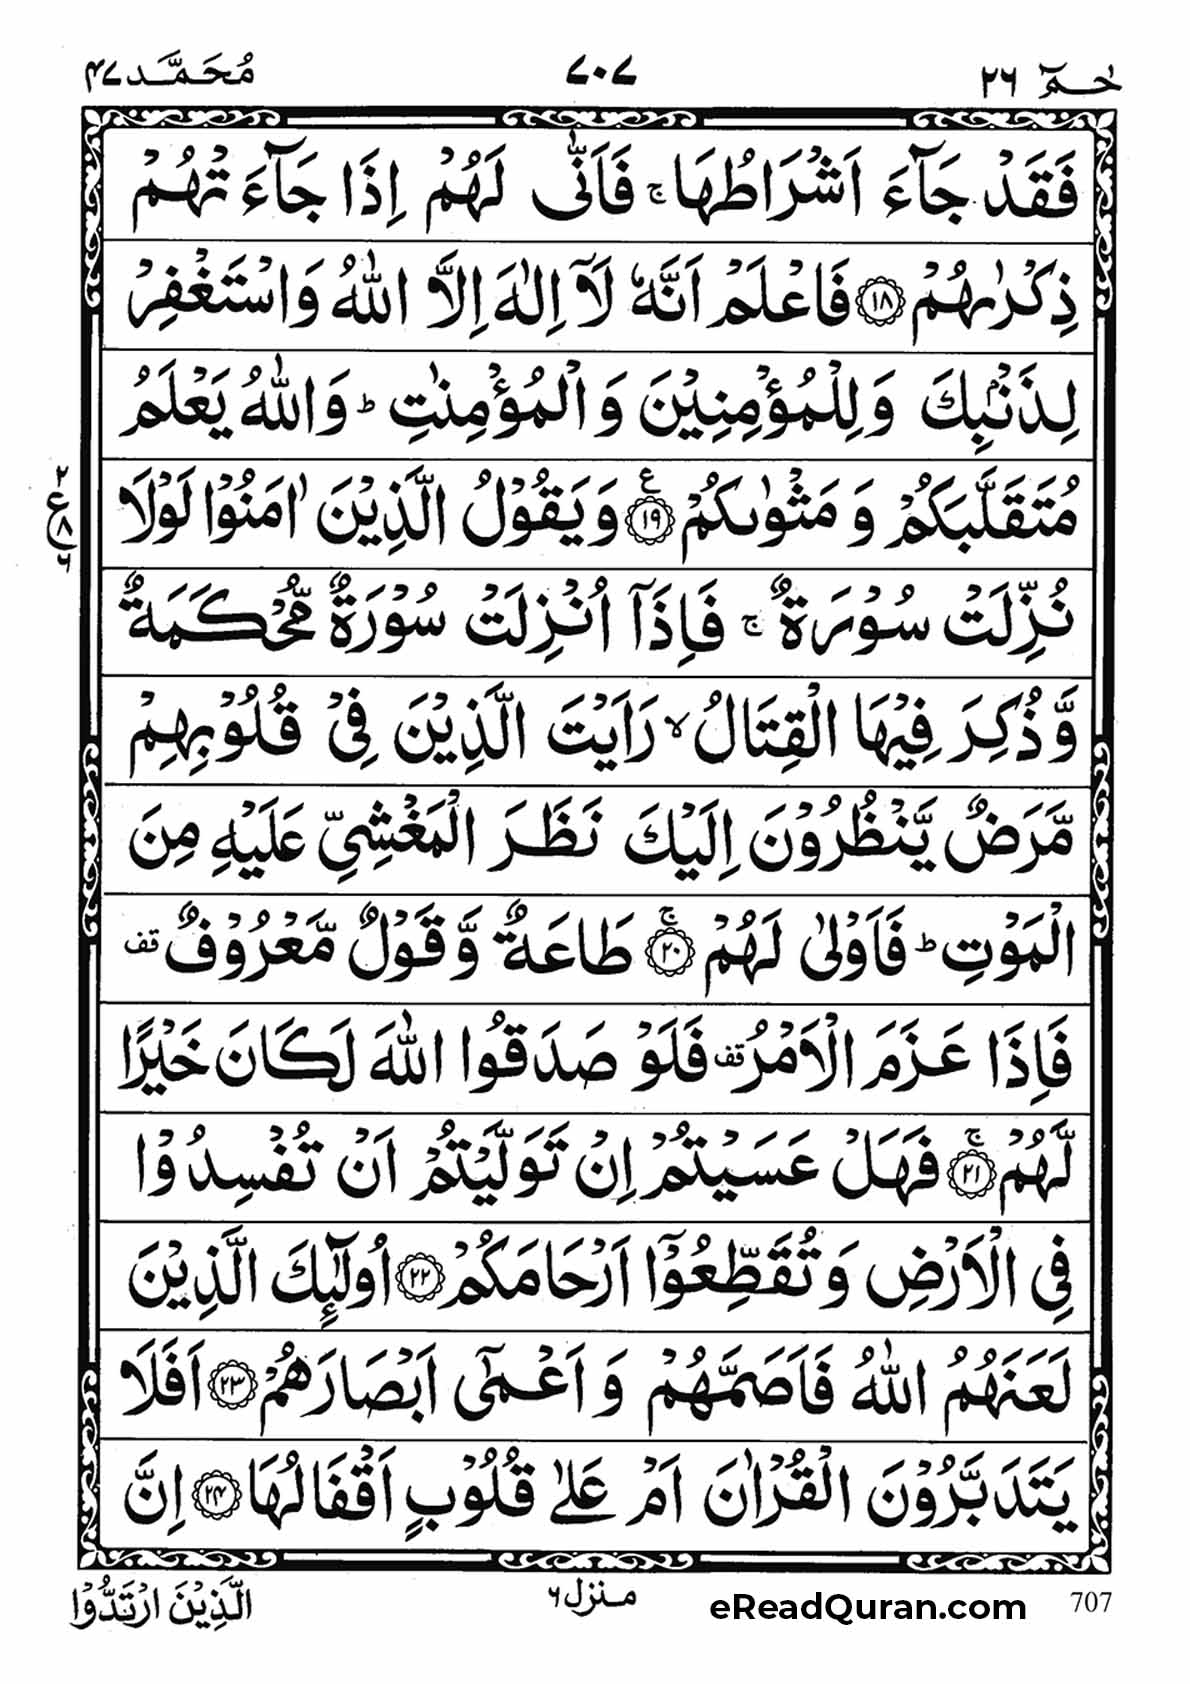 حٰـمٓ ٢٦
٧٠٧
مُحَمَّد ٤٧
فَقَدْ جَآءَ اَشْرَاطُهَا ۚ فَاَنّٰى لَهُمْ اِذَا جَآءَتْهُمْ
ذِكْرٰىهُمْ ﴿١٨﴾ فَاعْلَمْ اَنَّهٗ لَآ اِلٰهَ اِلَّا اللّٰهُ وَاسْتَغْفِرْ
لِذَنْۢبِكَ وَلِلْمُؤْمِنِيْنَ وَالْمُؤْمِنٰتِ ؕ وَاللّٰهُ يَعْلَمُ
مُتَقَلَّبَكُمْ وَمَثْوٰىكُمْ ﴿١٩﴾ ع وَيَقُوْلُ الَّذِيْنَ اٰمَنُوْا لَوْلَا
٢
ع
٨
٦
نُزِّلَتْ سُوْرَةٌ ۚ فَاِذَآ اُنْزِلَتْ سُوْرَةٌ مُّحْكَمَةٌ
وَّذُكِرَ فِيْهَا الْقِتَالُ ۙ رَاَيْتَ الَّذِيْنَ فِيْ قُلُوْبِهِمْ
مَّرَضٌ يَّنْظُرُوْنَ اِلَيْكَ نَظَرَ الْمَغْشِيِّ عَلَيْهِ مِنَ
الْمَوْتِ ؕ فَاَوْلٰى لَهُمْ ﴿٢٠﴾ ۚ طَاعَةٌ وَّقَوْلٌ مَّعْرُوْفٌ قف
فَاِذَا عَزَمَ الْاَمْرُ قف فَلَوْ صَدَقُوا اللّٰهَ لَكَانَ خَيْرًا
لَّهُمْ ﴿٢١﴾ ۚ فَهَلْ عَسَيْتُمْ اِنْ تَوَلَّيْتُمْ اَنْ تُفْسِدُوْا
فِي الْاَرْضِ وَتُقَطِّعُوْٓا اَرْحَامَكُمْ ﴿٢٢﴾ اُولٰٓئِكَ الَّذِيْنَ
لَعَنَهُمُ اللّٰهُ فَاَصَمَّهُمْ وَاَعْمٰٓى اَبْصَارَهُمْ ﴿٢٣﴾ اَفَلَا
يَتَدَبَّرُوْنَ الْقُرْاٰنَ اَمْ عَلٰى قُلُوْبٍ اَقْفَالُهَا ﴿٢٤﴾ اِنَّ
الَّذِيْنَ ارْتَدُّوْا
منزل ٦
eReadQuran.com
707